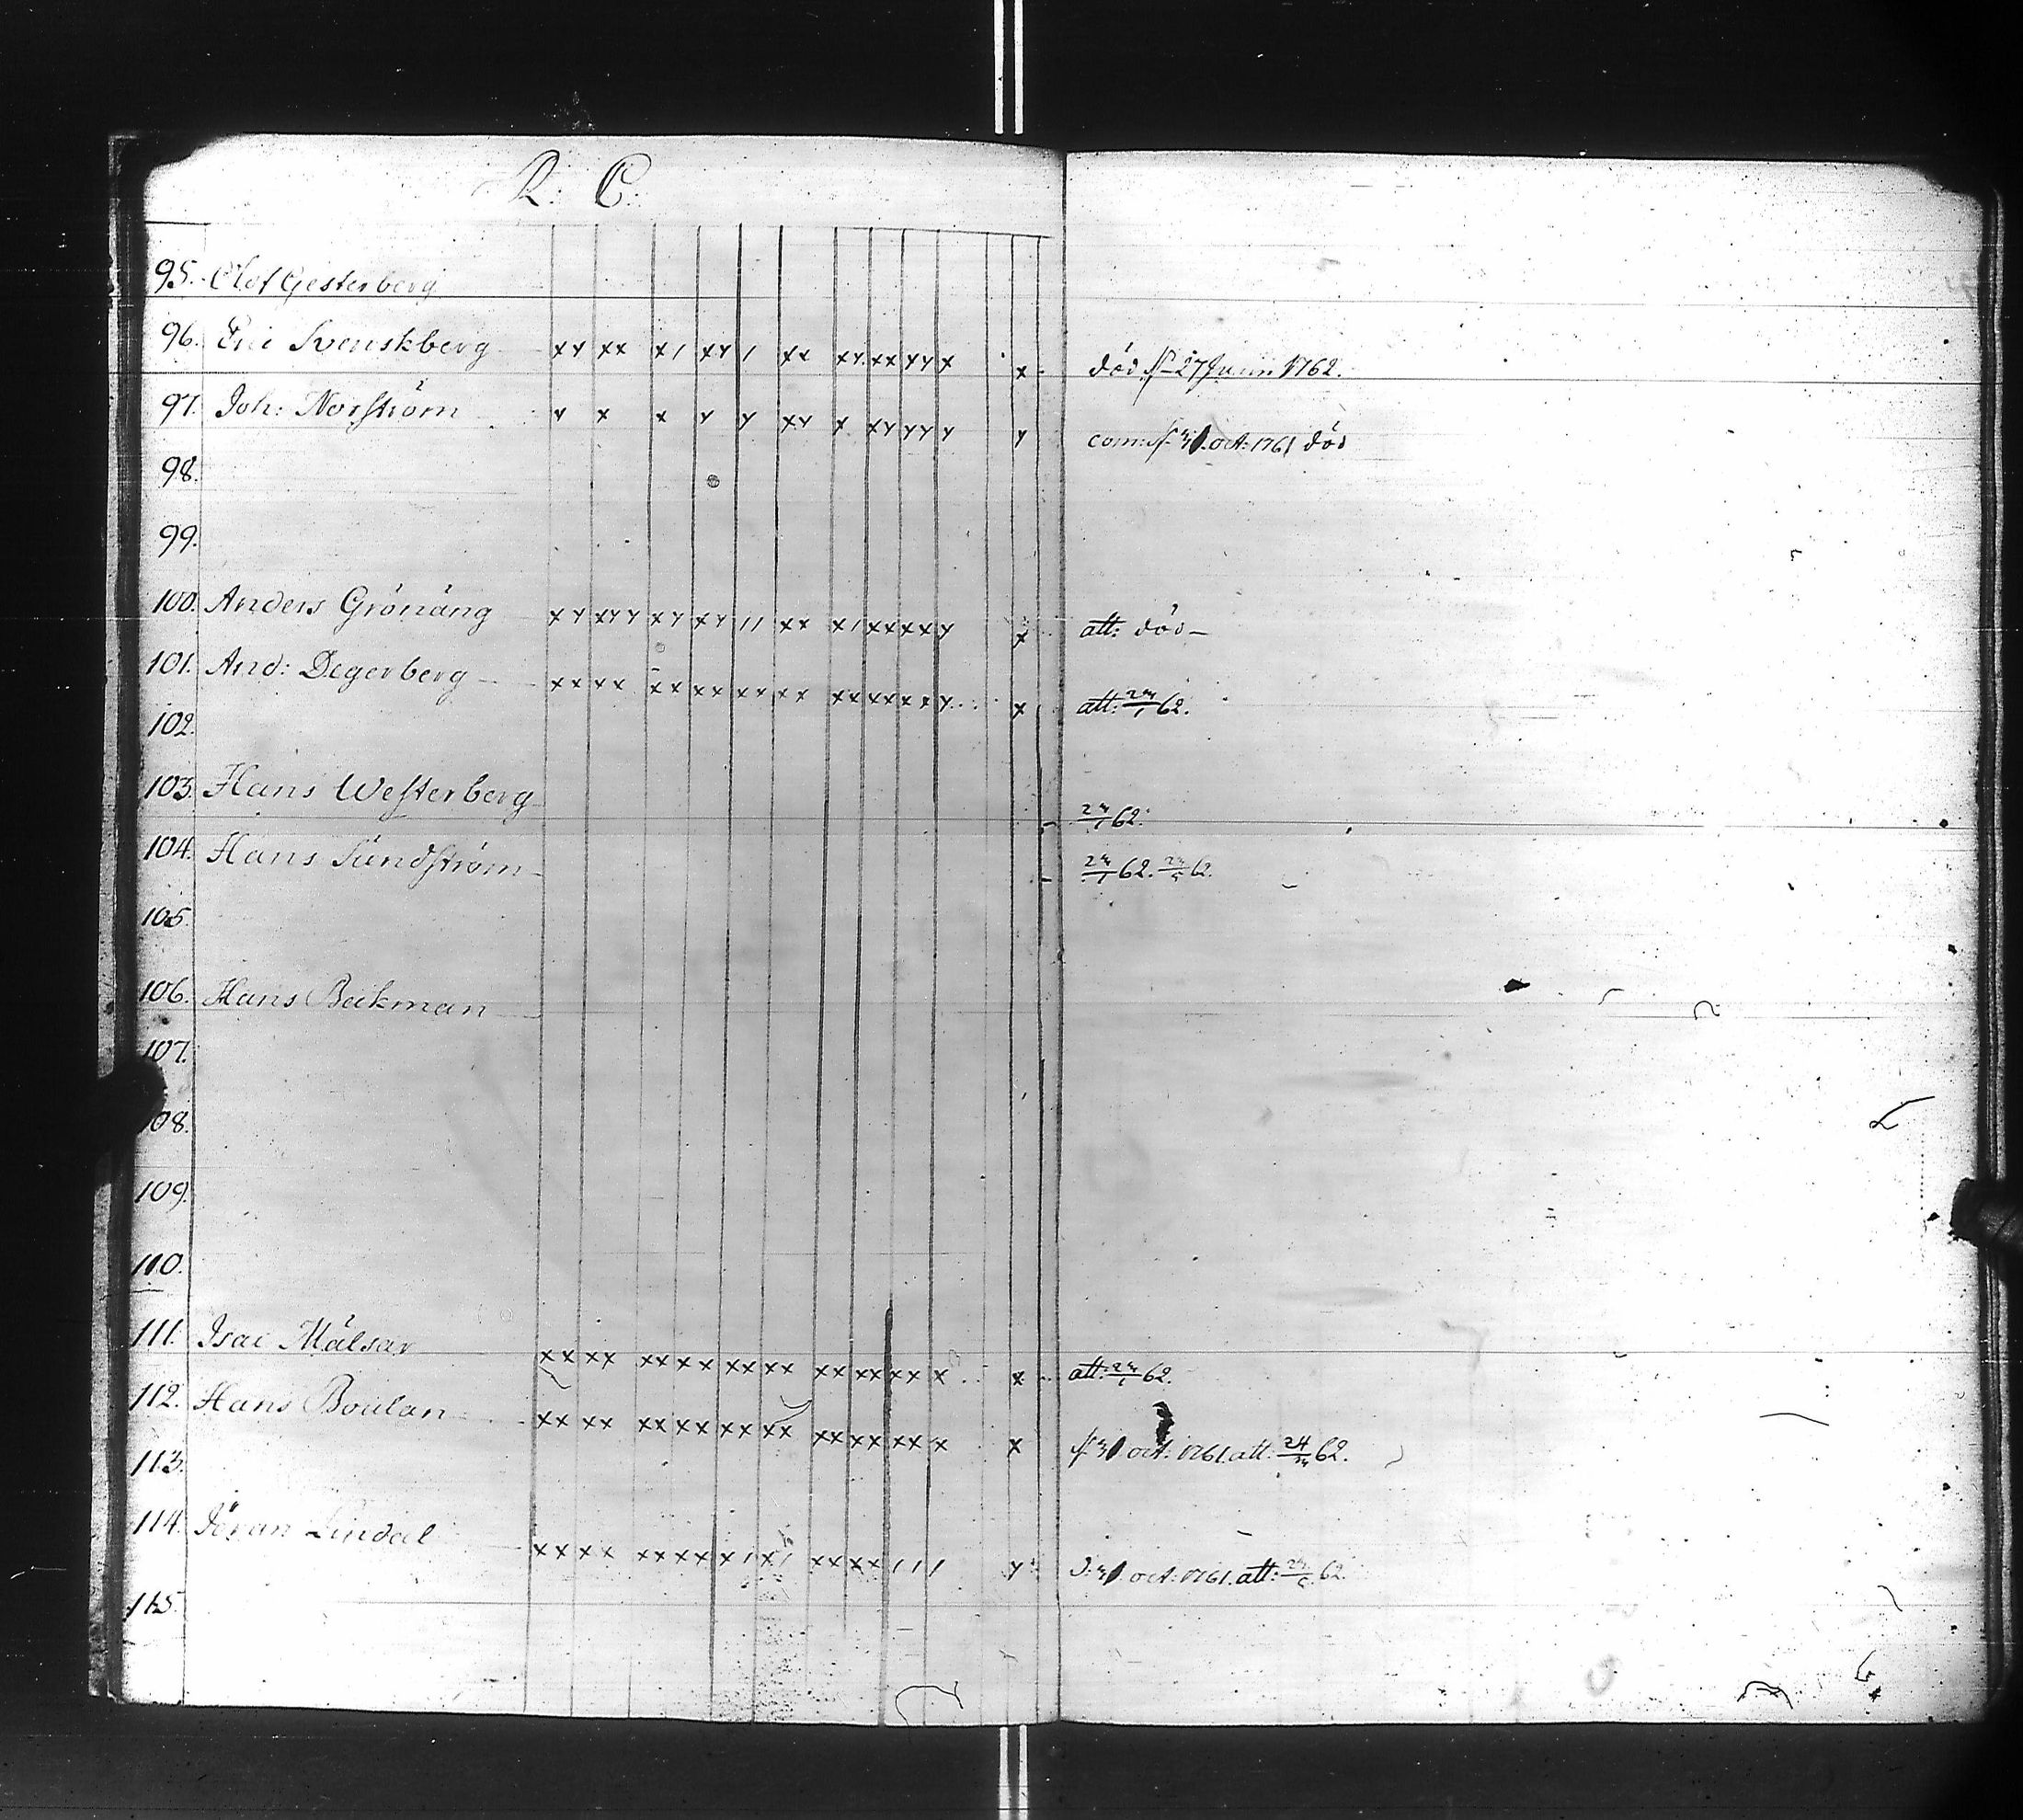 R: C:
95. Olof Gesterberg
96. Eric Svenskberg xy xx x/ xy / xx xy xx yy x x död 27 Junii 1762.
97. Joh: Norström y x x y y xy x xy yy y y com: 31 oct: 1761 död
98.
99.
100. Anders Grönäng xy xyy xy xy // xx x/ xx xx y x att: död
101. And: Degerberg xx xx xx xx xx xx xx xx xx y x att: 24/1 62.
102.
103. Hans Westerberg 24/1 62.
104. Hans Sundström 24/1 62. 24/5 62.
105.
106. Hans Beckman
107.
108.
109.
110.
111. Isac Mälsar xx xx xx xx xx xx xx xx xx x x att: 24/1 62.
112. Hans Boulan xx xx xx xx xx xx xx xx xx x x 31 oct: 1761. att: 24 62.
113.
114. Jöran Lindal xx xx xx xx x/ x/ xx xx // / y 31 oct: 1761. att: 62.
115.